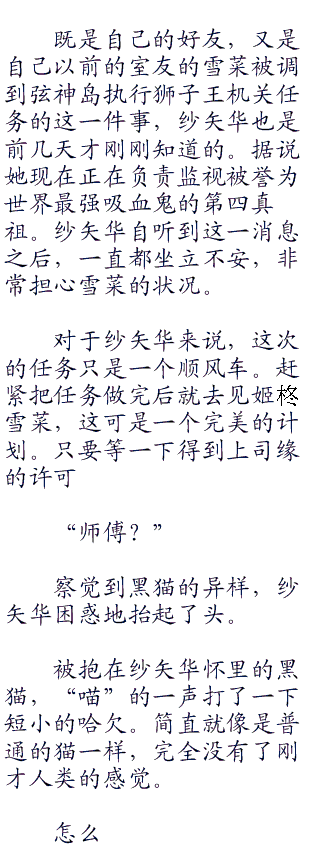 既是自己的好友，又是
自己以前的室友的雪菜被调
到弦神岛执行狮子王机关任
务的这一件事，纱矢华也是
前几天才刚刚知道的。据说
她现在正在负责监视被誉为
世界最强吸血鬼的第四真
祖。纱矢华自听到这一消息
之后，一直都坐立不安，非
常担心雪菜的状况。
对于纱矢华来说，这次
的任务只是一个顺风车。赶
紧把任务做完后就去见姬柊
雪菜，这可是一个完美的计
划。只要等一下得到上司缘
的许可
“师傅？”
察觉到黑猫的异样，纱
矢华困惑地抬起了头。
被抱在纱矢华怀里的黑
猫，“喵”的一声打了一下
短小的哈欠。简直就像是普
通的猫一样，完全没有了刚
才人类的感觉。
怎么